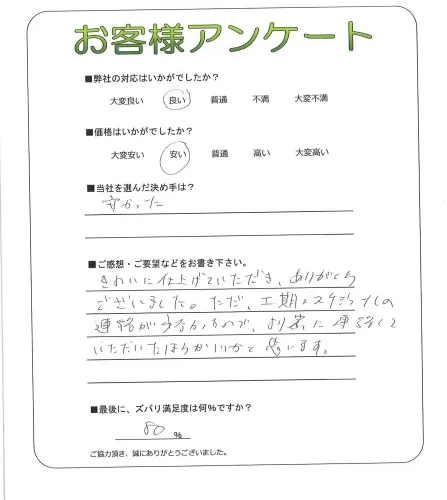 お客様アンケート
■弊社の対応はいかがでしたか？
大変良い 良い 普通 不満 大変不満
■価格はいかがでしたか？
大変安い 安い 普通 高い 大変高い
■当社を選んだ決め手は？
安かった
■ご感想・ご要望などをお書き下さい。
きれいに仕上げていただき、ありがとう
ございました。ただ、工期のスケジュールの
連絡が少なかったので、より密に連絡して
いただいたほうがいいかと思います。
■最後に、ズバリ満足度は何%ですか？
80 %
ご協力頂き、誠にありがとうございました。